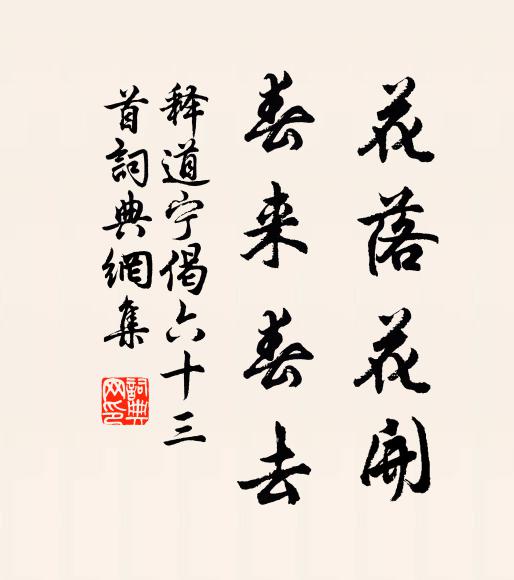 花落花開
春来春去
释道宁偈六十三
首詞典網集
詞典
网印